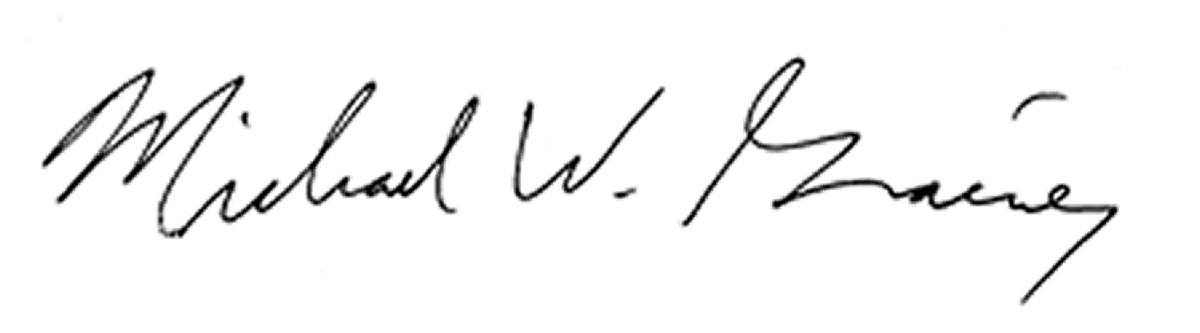 Michael W. Grainey